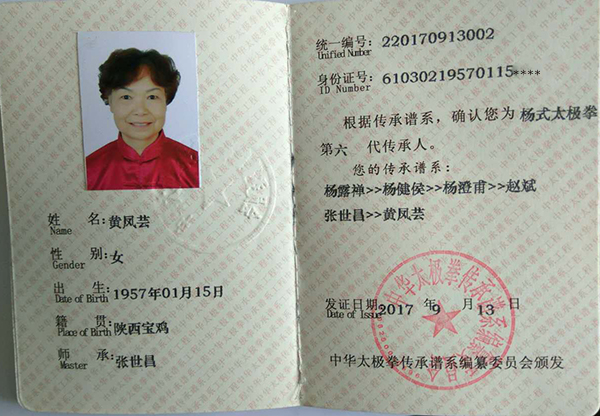 姓 名: 黄凤芸
Name
性 别: 女
Gender
出 生: 1957年01月15日
Date of Birth
籍 贯: 陕西宝鸡
Place of Birth
师 承: 张世昌
Master
统一编号: 220170913002
Unified Number
身份证号: 61030219570115****
ID Number
根据传承谱系，确认您为 杨式太极拳
第六 代传承人。
您的传承谱系：
杨露禅>>杨健侯>>杨澄甫>>赵斌
张世昌>>黄凤芸
中华太极拳传承谱系编纂委员会
发证日期: 2017 年 9 月 13 日
Date of Issue
中华太极拳传承谱系编纂委员会颁发